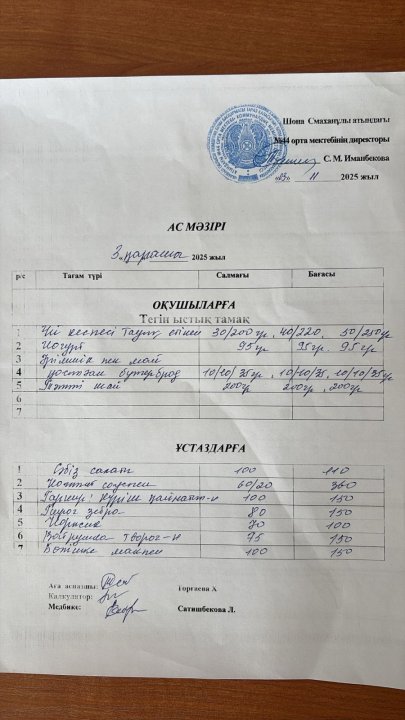 Шона Смаханұлы атындағы
№44 орта мектебінің директоры
С. М. Иманбекова
«03» 11 2025 жыл
АС МӘЗІРІ
3 қараша 2025 жыл
р/с Тағам түрі Салмағы Бағасы
ОҚУШЫЛАРҒА
Тегін ыстық тамақ
1 Үй кеспесі Тауық етімен 30/200гр, 40/220, 50/250гр
2 Йогурт 95гр 95гр, 95гр
3 Ірімшік пен май
4 қосылған бутерброд 10/10/35гр, 10/10/35, 10/10/35гр
5 Тәтті шай 200гр 200гр, 200гр
6
7
ҰСТАЗДАРҒА
1 Сәбіз салат 100 110
2 60/20 360
3 Гарнир: күріш 100 150
4 Пирог зебра 80 150
5 70 100
6 творог 75 150
7 100 150
Аға аспазшы: Торғаева Х
Калкулятор:
Медбике: Сатишбекова Л.